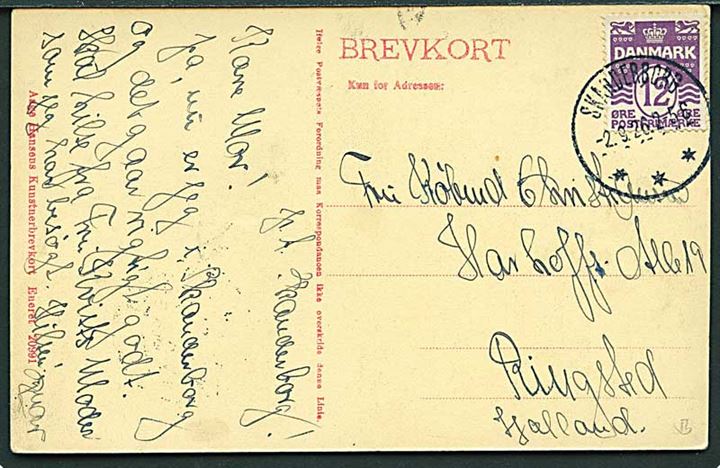 BREVKORT
Kun for Adressen:
DANMARK
12
ØRE ØRE
POSTFRIMÆRKE
SKANDERBORG
-2.9.26. 2-5 E
Fru Købmd Christensen
Harhoffs Alle 19
Ringsted
Sjælland.
Ifølge Postvæsenets Forordning maa Korrespondancen ikke overskride denne Linie.
p.t. Skanderborg!
Kære Mor!
Ja, nu er jeg i Skanderborg
og det gaar rigtigt godt.
Skal hilse fra Fru Moder
som jeg har besøgt. Hilsen
Aage Hansens Kunstnerbrevkort Eneret 20991